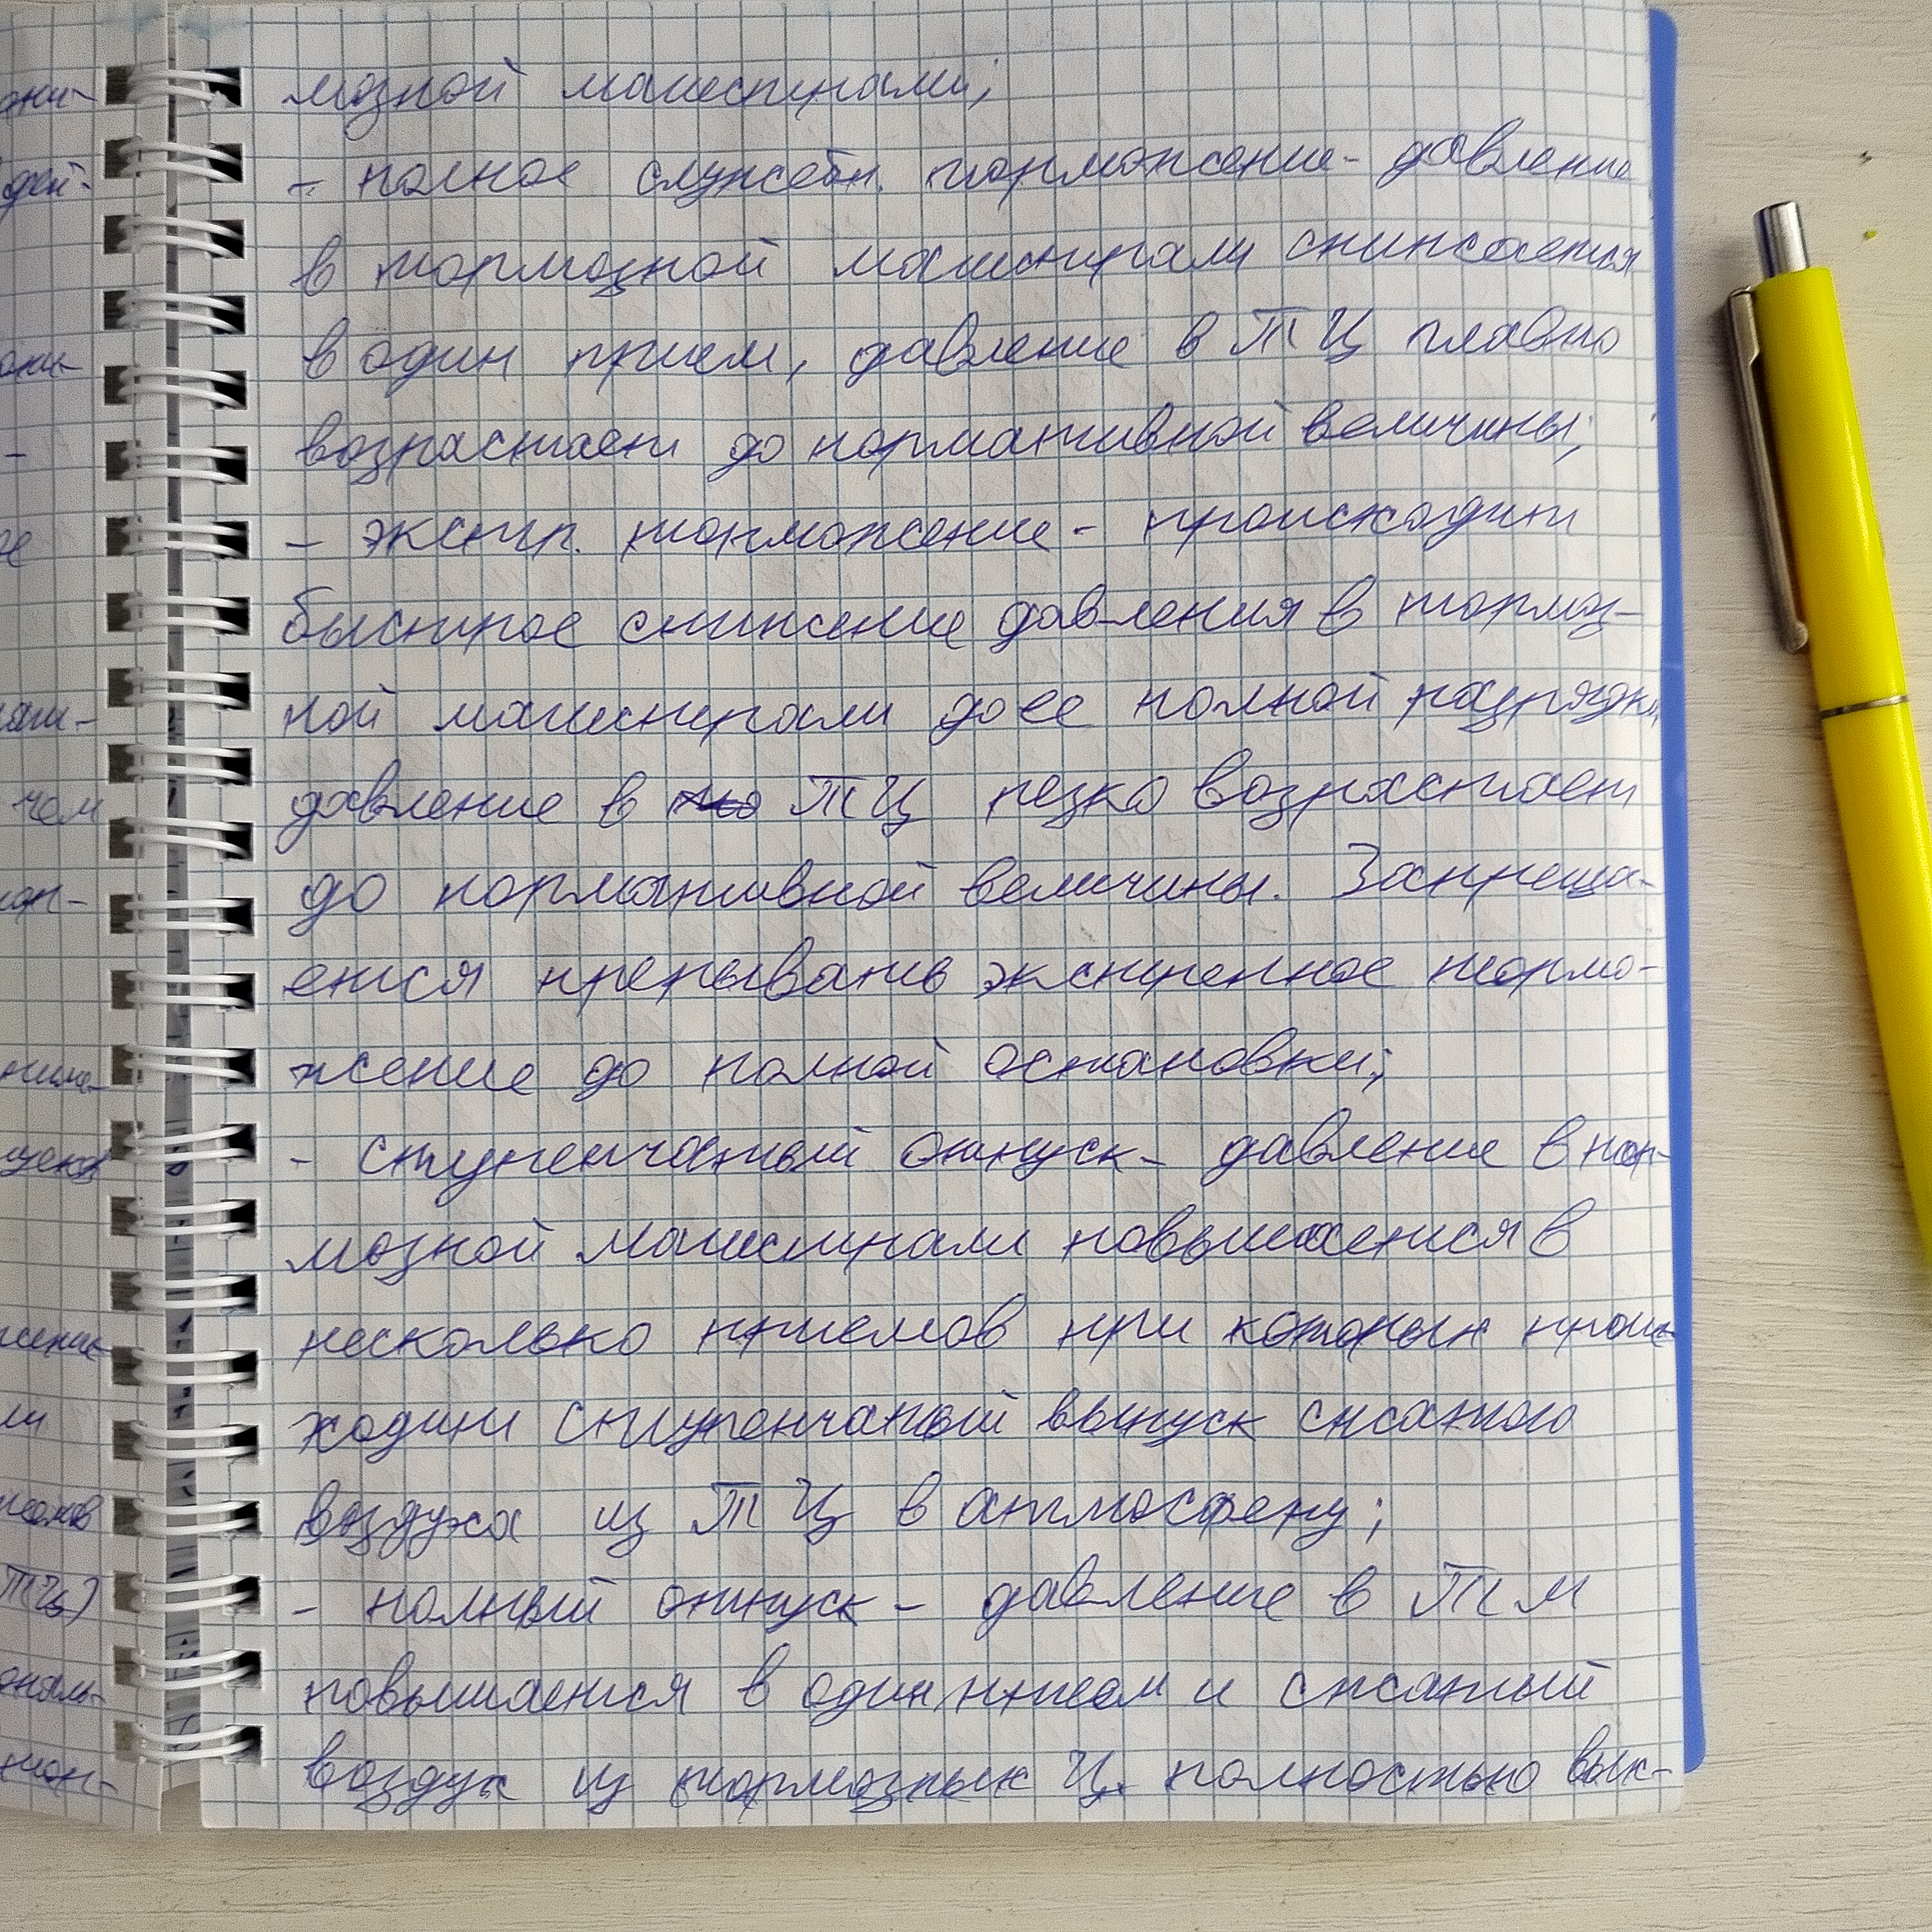 мозной магистрали;
- полное служебн. торможение - давление
в тормозной магистрали снижается
в один прием, давление в ТЦ плавно
возрастает до нормативной величины;
- экстр. торможение - происходит
быстрое снижение давления в тормоз-
ной магистрали до ее полной разрядки
давление в ТЦ резко возрастает
до нормативной величины. Запреща-
ется прерывать экстренное тормо-
жение до полной остановки;
- ступенчатый отпуск - давление в тор-
мозной магистрали повышается в
несколько приемов при которых проис-
ходит ступенчатый выпуск сжатого
воздуха из ТЦ в атмосферу;
- полный отпуск - давление в ТМ
повышается в один прием и сжатый
воздух из тормозных Ц. полностью вых-